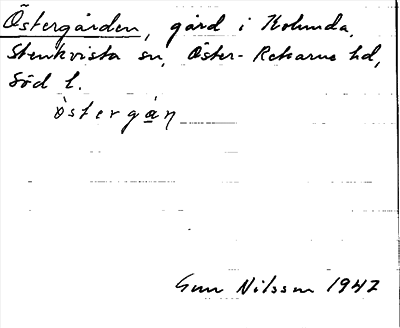 Östergården, gård i Kolunda,
Stenkvista sn, Öster-Rekarne hd,
Söd l.
östergån
Gun Nilsson 1947